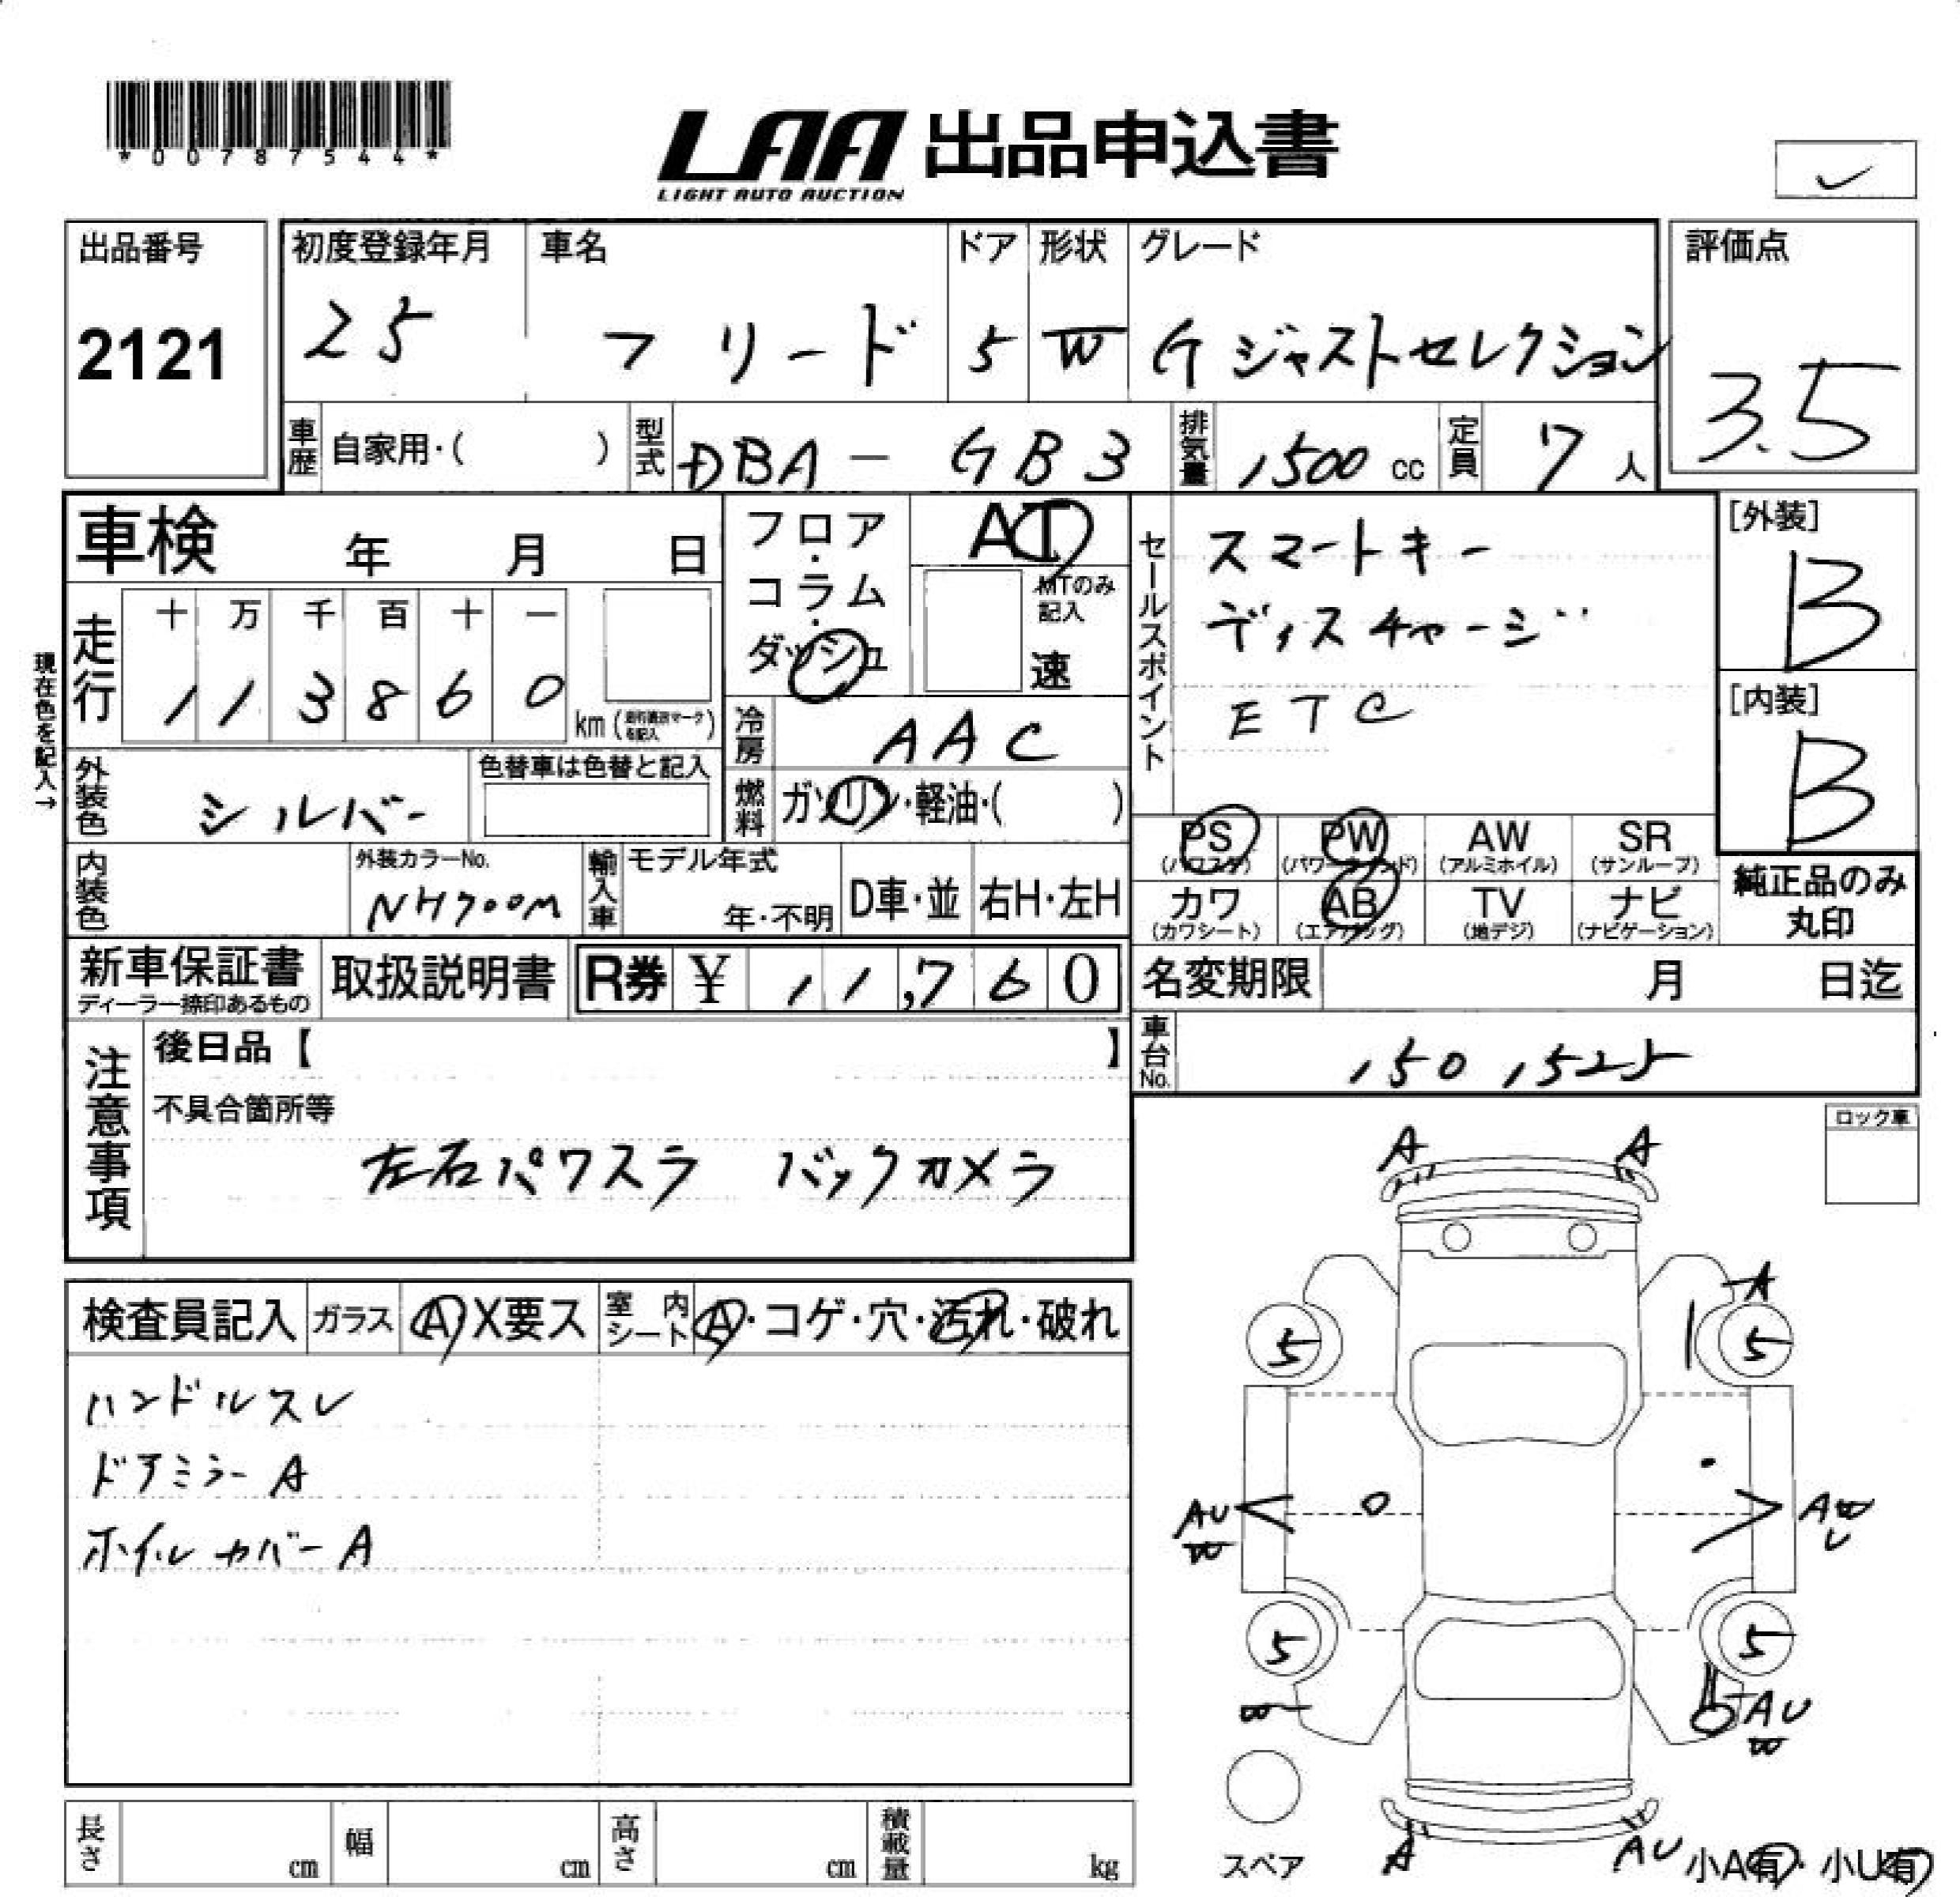 *00787544*
LAA 出品申込書
LIGHT AUTO AUCTION
出品番号
2121
初度登録年月
25
車名
フリード
ドア
5
形状
W
グレード
G ジャストセレクション
評価点
3.5
車歴
自家用・( )
型式
DBA - GB3
排気量
1500 cc
定員
7 人
車検 年 月 日
フロア・コラム・ダッシュ
AT
MTのみ記入
速
セールスポイント
スマートキー
ディスチャージ
ETC
[外装]
B
[内装]
B
現在色を記入→
走行
十 万 千 百 十 一
1 1 3 8 6 0
km
冷房
AAC
外装色
シルバー
色替車は色替と記入
燃料
ガソリン・軽油・( )
PS PW AW SR
(パワステ) (パワーウインド) (アルミホイル) (サンルーフ)
カワ AB TV ナビ
(カワシート) (エアバッグ) (地デジ) (ナビゲーション)
純正品のみ
丸印
内装色
外装カラーNo.
NH700M
輸入車
モデル年式
年・不明
D車・並
右H・左H
新車保証書
ディーラー捺印あるもの
取扱説明書
R券 ¥ 11,760
名変期限 月 日迄
車台No.
1501525
注意事項
後日品【 】
不具合箇所等
左右パワスラ バックカメラ
ロック車
検査員記入
ガラス
A X要ス
室内シート
A・コゲ・穴・汚れ・破れ
ハンドルスレ
ドアミラーA
ホイルカバーA
A A
A
5 5
AU
W
AW
U
5 5
W
AU
W
A AU
スペア
小A有・小U有
長さ cm
幅 cm
高さ cm
積載量 kg